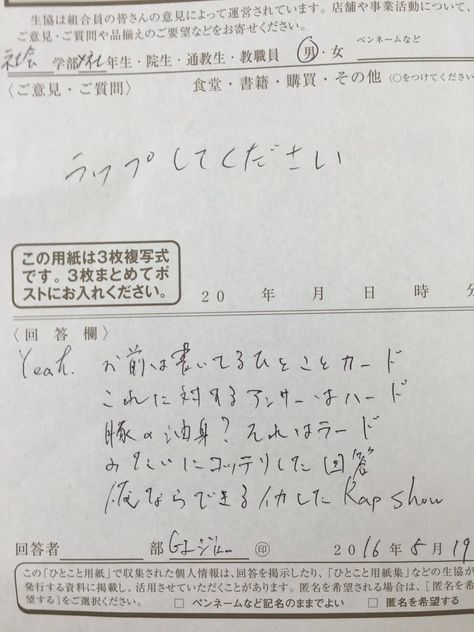 生協は組合員の皆さんの意見によって運営されています。店舗や事業活動について、
ご意見・ご質問や品揃えのご要望などをお寄せください。
社会 学部 年生・院生・通教生・教職員 男・女 ペンネームなど
〈ご意見・ご質問〉 食堂・書籍・購買・その他 (○をつけてください
ラップしてください
この用紙は3枚複写式
です。3枚まとめてポ
ストにお入れください。
20 年 月 日 時 分
〈回答欄〉
Yeah. お前は書いてるひとことカード
これに対するアンサーはハード
豚の油身?それはラード
みたいにコッテリした回答
俺ならできるイカした Rap show
回答者 部 ジョー 印 2016年5月19
この「ひとこと用紙」で収集された個人情報は、回答を掲示したり、「ひとこと用紙集」などの生協が
発行する資料に掲載し、活用させていただくことがあります。匿名を希望される場合は、[匿名を希
望する]をご選択ください。 □ ペンネームなど記名のままでよい □ 匿名を希望する